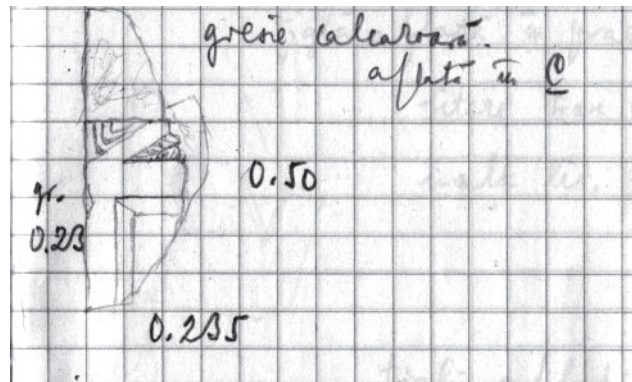 gresie calcaroasă.
aflată în C
0.50
gr.
0.23
0.235